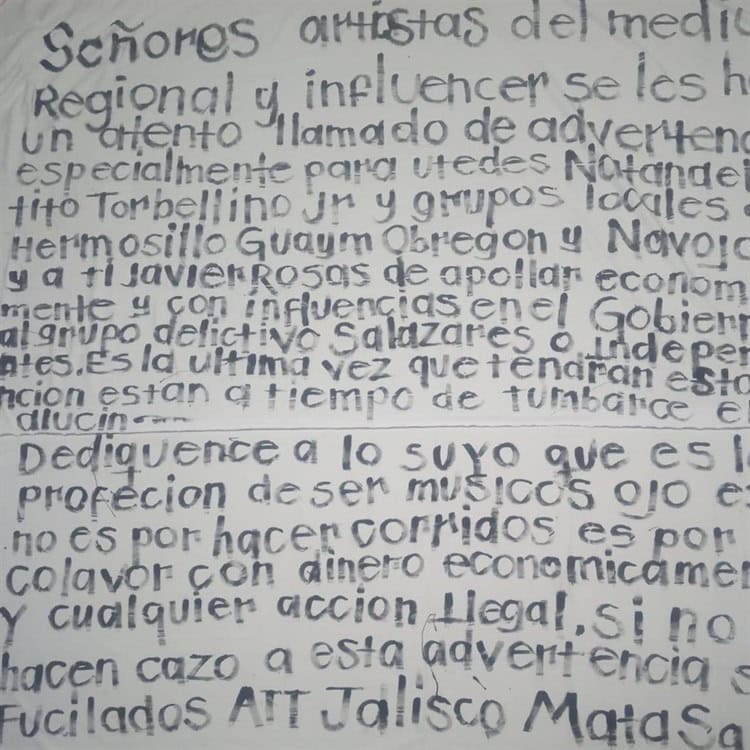 Señores artistas del medi
Regional y influencer se les h
un atento llamado de adverten
especialmente para utedes Natanael
tito Torbellino jr y grupos locales
Hermosillo Guaym Obregon y Navojo
y a ti Javier Rosas de apollar econom
mente y con influencias en el Gobier
al grupo delictivo Salazares o indepe
ntes. Es la ultima vez que tendran esta
ncion estan a tiempo de tumbarce e
alucin
Dediquence a lo suyo que es l
profecion de ser musicos ojo e
no es por hacer corridos es por
colavor con dinero economicame
Y cualquier accion Ilegal. si no
hacen cazo a esta advertencia s
Fucilados ATT Jalisco Mata Sa